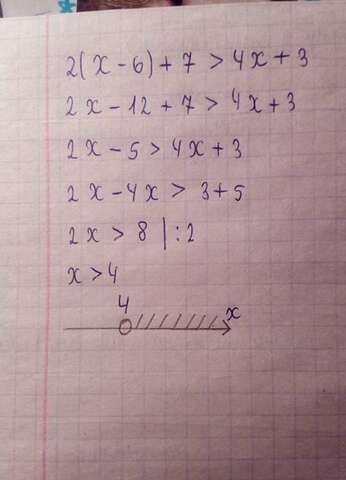 2(x - 6) + 7 > 4x + 3
2x - 12 + 7 > 4x + 3
2x - 5 > 4x + 3
2x - 4x > 3 + 5
2x > 8 | : 2
x > 4
4 x